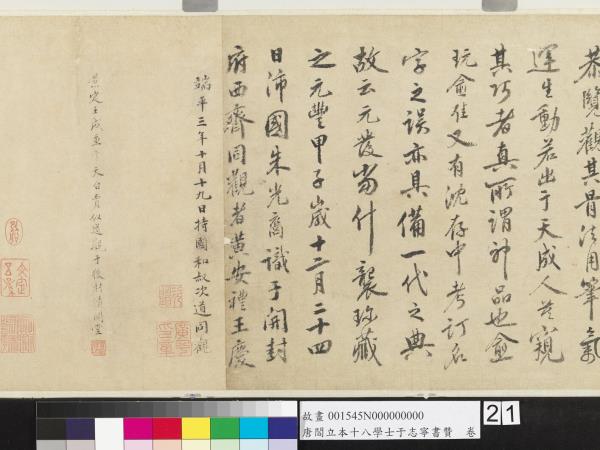 恭覽觀其骨法用筆氣
運生動若出于天成人莫窺
其巧者真所謂神品也愈
玩愈佳又有沈存中考訂名
字之誤亦具備一代之典
故云元發當什襲珍藏
之元豐甲子歲十二月二十四
日沛國朱光裔識于開封
府西齋同觀者黃安禮王慶
端平三年十月十九日持國和叔次道同觀
故畫 001545N000000000
唐閻立本十八學士于志寧書贊 卷
21